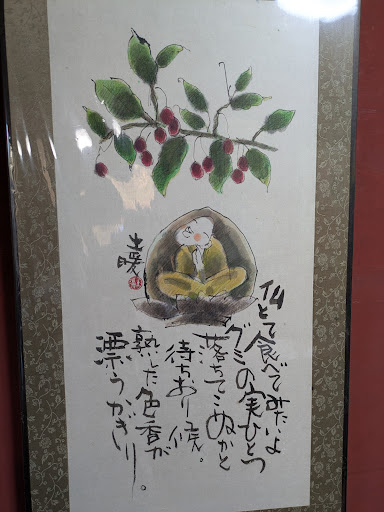 仏とて食べてみたいよ
グミの実ひとつ
落ちてこぬかと
待ちおり候。
熟した色香が
漂う